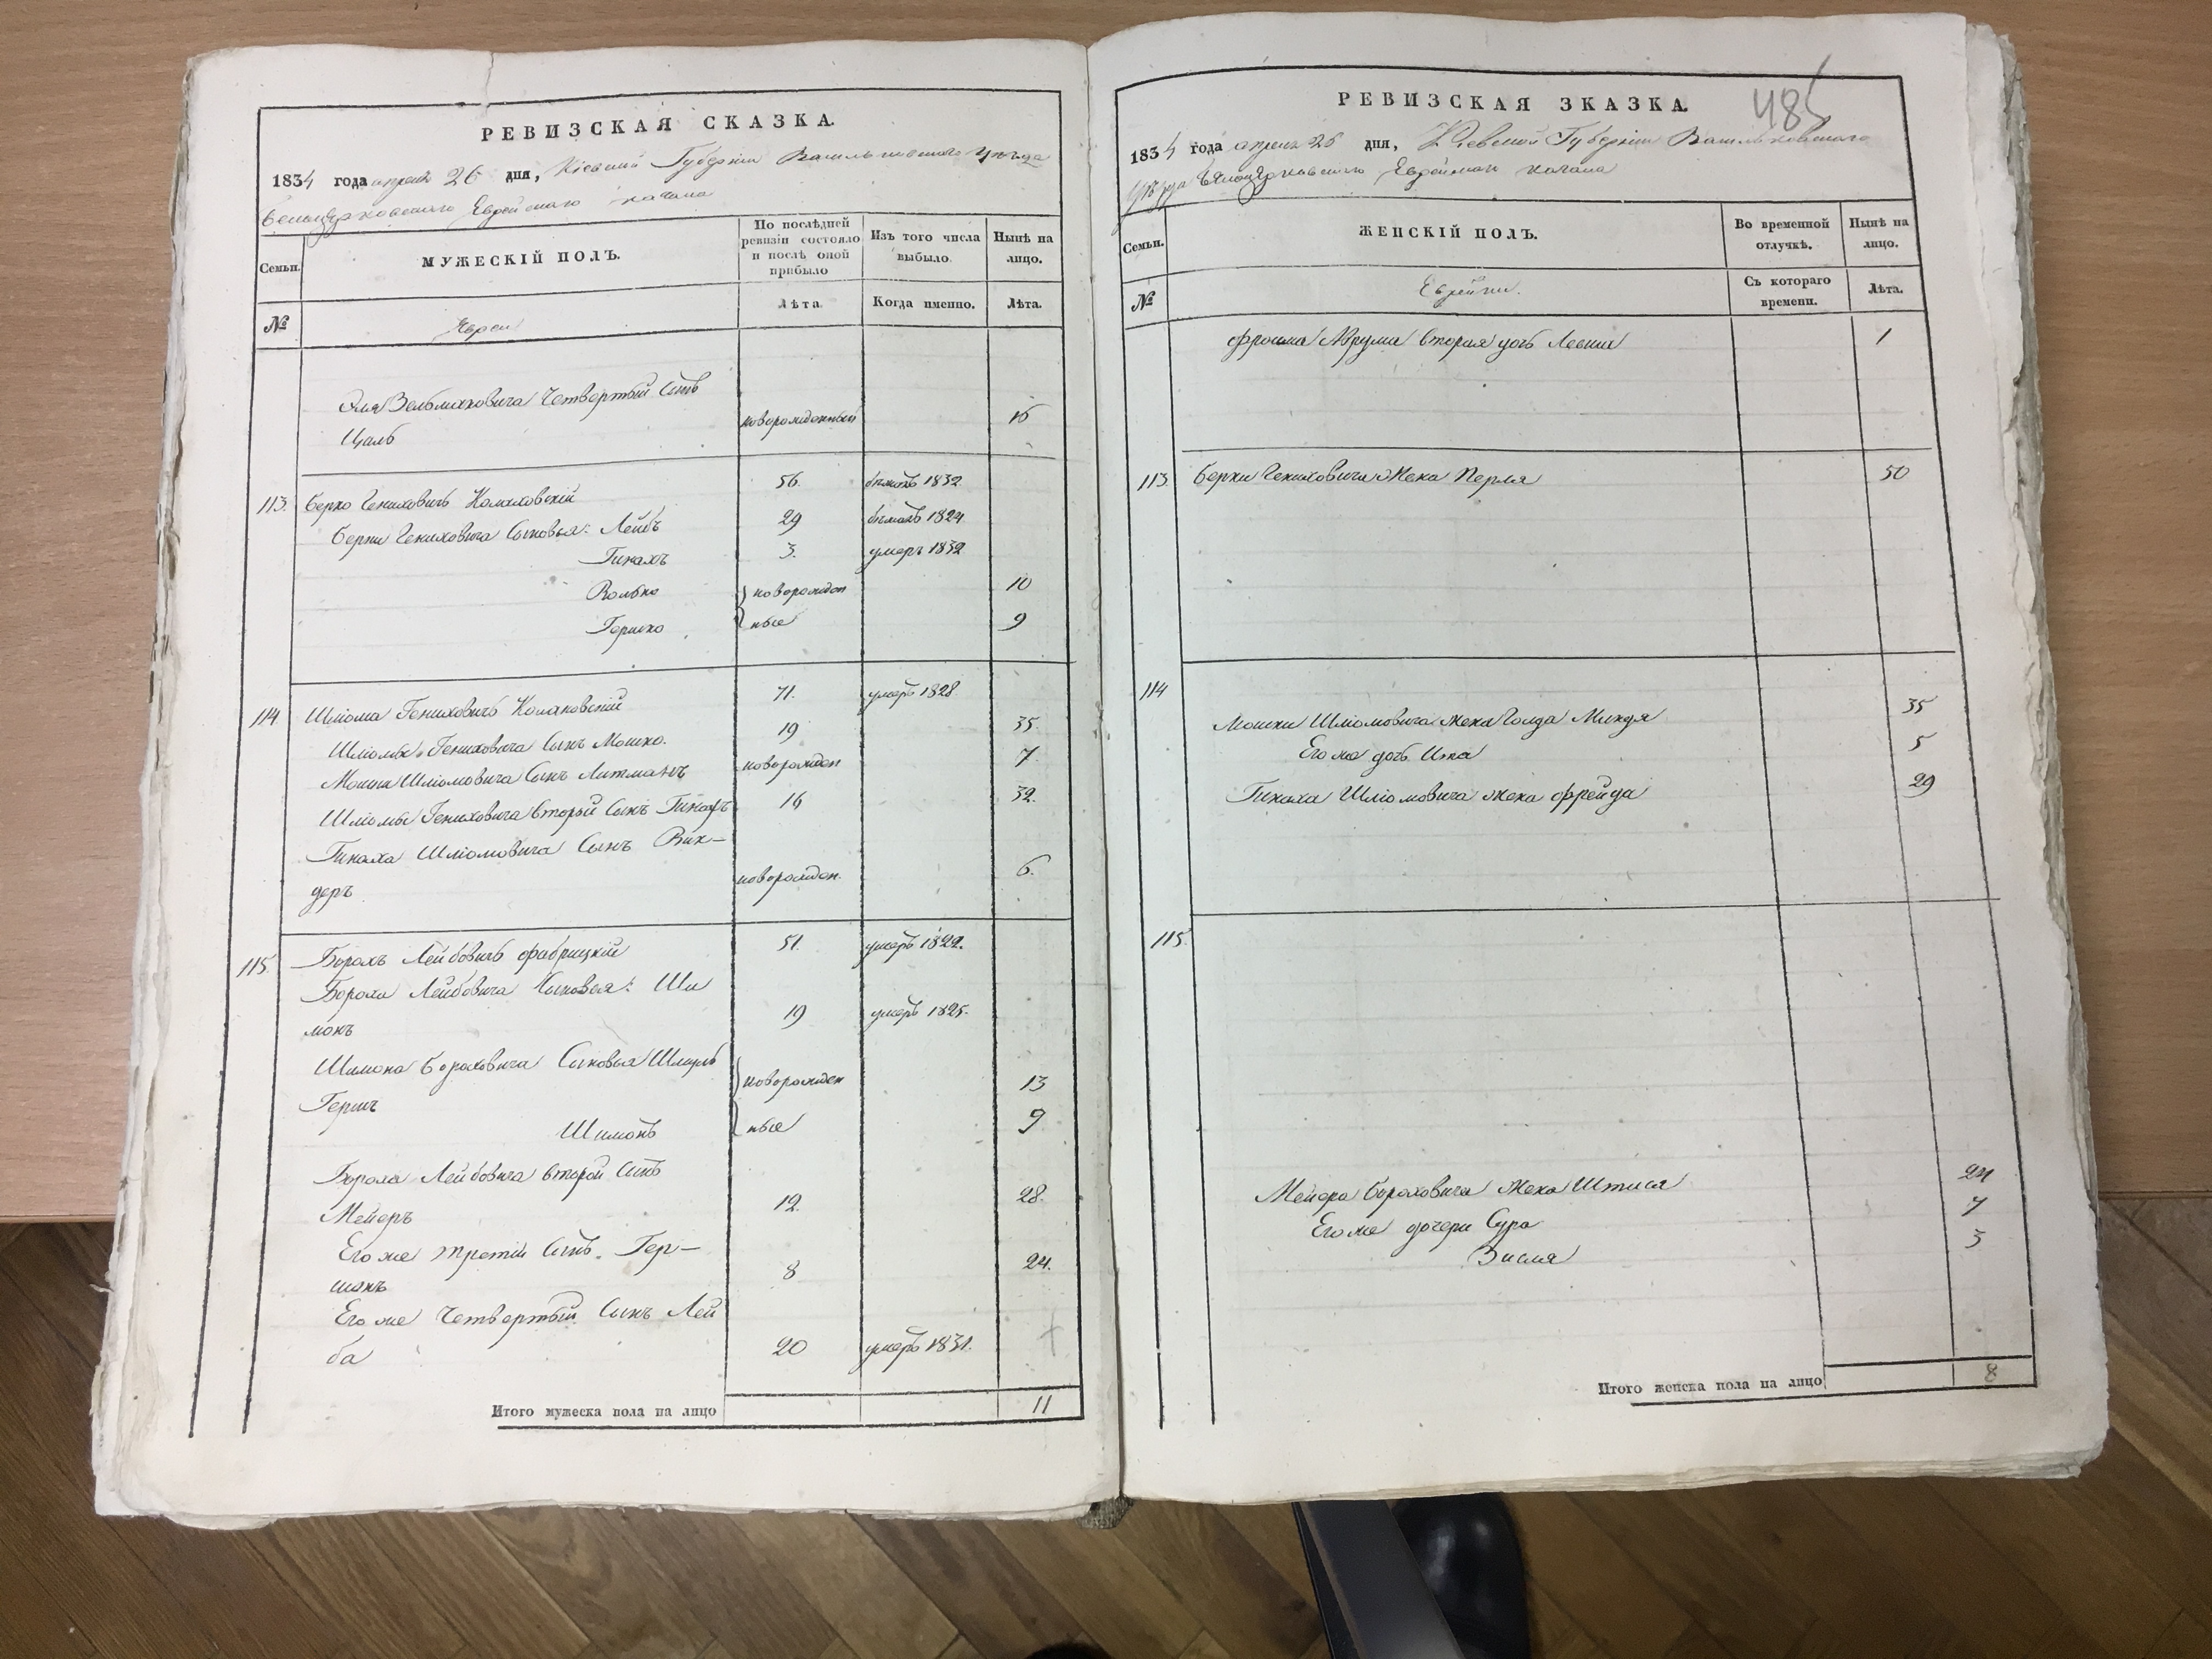 РЕВИЗСКАЯ СКАЗКА.
1834 года апреля 26 дня, Кіевской Губерніи Васильковского уезда
Белоцерковского Еврейского кагала
Семьи.
МУЖЕСКІЙ ПОЛЪ.
По послѣдней ревизіи состояло и послѣ оной прибыло
Изъ того числа выбыло.
Нынѣ на лицо.
№
Евреи
Лѣта.
Когда именно.
Лѣта.
Четвертый сынъ
новорожденный 15
113. Берко Гениховичъ 56. бѣжалъ 1832
Берки Гениховича Сыновья: Лейбъ 29 бѣжалъ 1824
Гинахъ 3. умеръ 1832
Волько новорожден 10
Гершко ные 9
114. Шліома Гениховичъ 71. умеръ 1828
Шліомы Гениховича Сынъ Мошко. 19 35.
Мошки Шліомовича Сынъ Литманъ новорожден 7.
Шліомы Гениховича второй Сынъ Гинахъ 16 32.
Гинаха Шліомовича Сынъ
деръ новорожден. 6.
115. Борохъ Лейбовичъ Фабрицкій 51. умеръ 1822.
Бороха Лейбовича Сыновья: Ши
монъ 19 умеръ 1825.
Шимона Бороховича Сыновья Шмуль
Гершъ новорожден 13
Шимонъ ные 9
Бороха Лейбовича второй сынъ
Мейеръ 12. 28.
Его же третій сынъ Гер-
шонъ 8 24.
Его же Четвертый Сынъ Лей
ба 20 умеръ 1831.
Итого мужеска пола на лицо 11
РЕВИЗСКАЯ ЗКАЗКА.
485
1834 года апреля 26 дня, Кіевской Губерніи Васильковского
уезда Белоцерковского Еврейского кагала
Семьи.
ЖЕНСКІЙ ПОЛЪ.
Во временной отлучкѣ.
Нынѣ на лицо.
№
Еврейки.
Съ котораго времени.
Лѣта.
вторая дочь 1
113. Берки Гениховича Жена Перля 50
114
Мошки Шліомовича жена Голда Миндя 35
Его же дочь 5
Гинаха Шліомовича жена Фрейда 29
115.
Мейера Бороховича Жена 24
Его же дочери Сура 7
Зисля 3
Итого женска пола на лицо 8